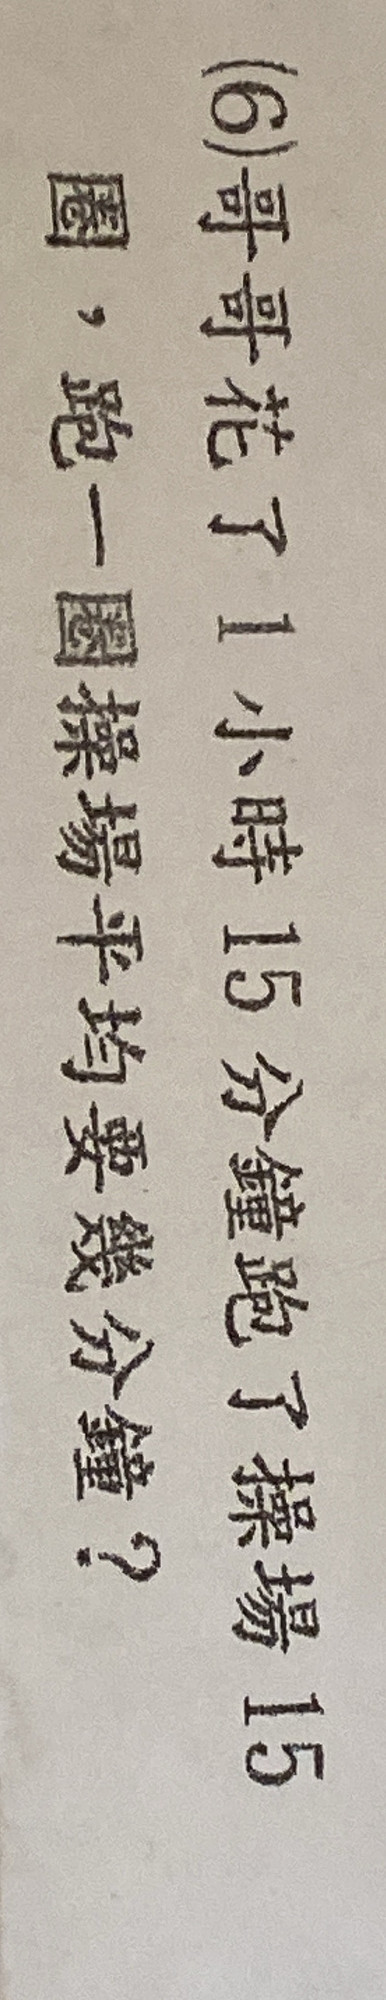 (6)哥哥花了1小時15分鐘跑了操場15
圈，跑一圈操場平均要幾分鐘？